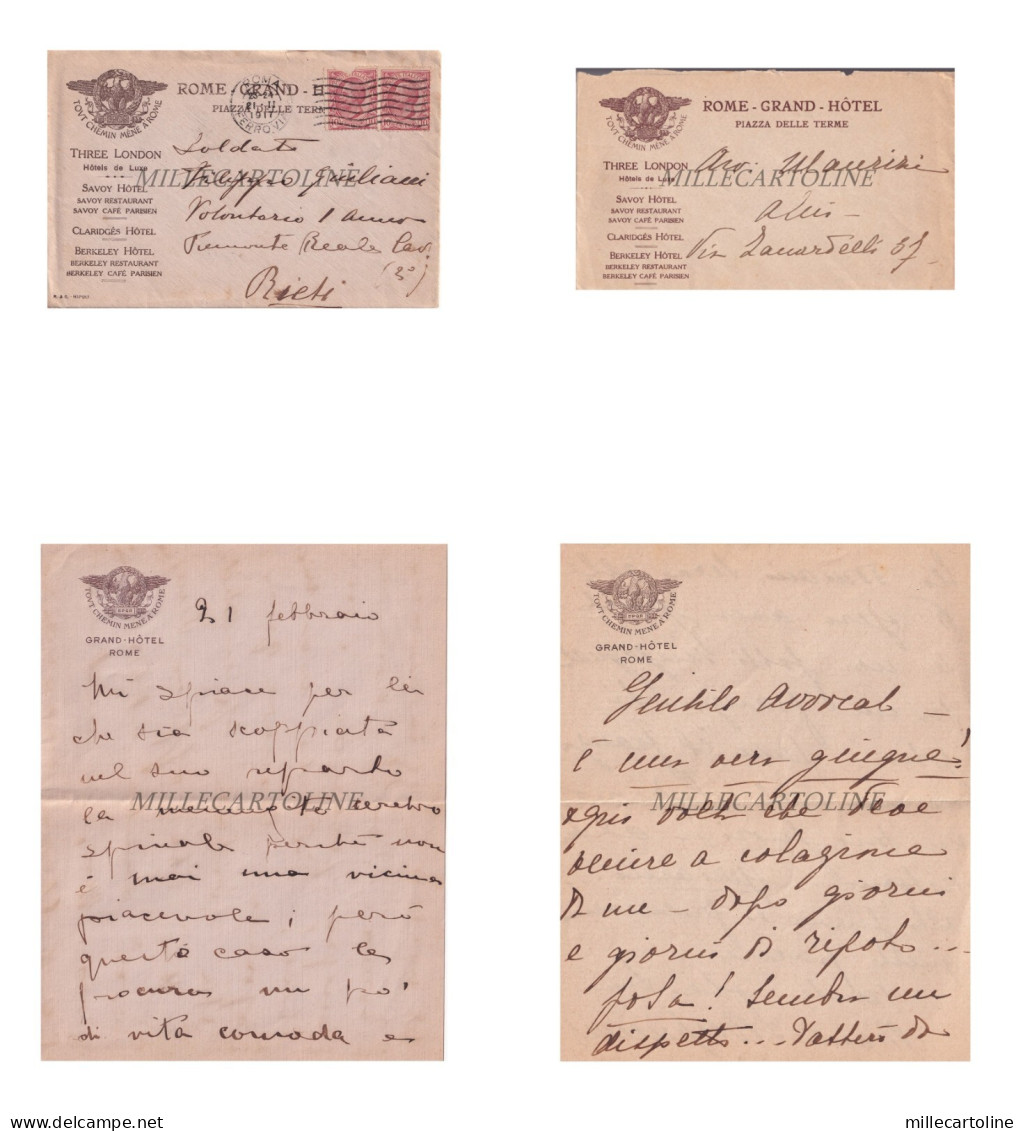 TOVT CHEMIN MÈNE À ROME
ROME - GRAND - H
PIAZZA DELLE TERME
ROMA
21·II
1917
FERROVIA
THREE LONDON
Hôtels de Luxe
SAVOY HÔTEL
SAVOY RESTAURANT
SAVOY CAFÉ PARISIEN
CLARIDGÉS HÔTEL
BERKELEY HÔTEL
BERKELEY RESTAURANT
BERKELEY CAFÉ PARISIEN
Soldato
Filippo Giuliani
Volontario 1 Anno
Piemonte Reale Cav.
(2°)
Rieti
MILLECARTOLINE
TOVT CHEMIN MÈNE À ROME
ROME - GRAND - HÔTEL
PIAZZA DELLE TERME
THREE LONDON
Hôtels de Luxe
SAVOY HÔTEL
SAVOY RESTAURANT
SAVOY CAFÉ PARISIEN
CLARIDGÉS HÔTEL
BERKELEY HÔTEL
BERKELEY RESTAURANT
BERKELEY CAFÉ PARISIEN
Avv.
Via Zanardelli 37
MILLECARTOLINE
TOVT CHEMIN MÈNE À ROME
GRAND-HÔTEL
ROME
21 febbraio
Mi spiace per lei
che sia scoppiata
nel suo reparto
la meningite cerebro
spinale perché non
è mai una vicina
piacevole; però
questo caso le
procura un po'
di vita comoda e
MILLECARTOLINE
TOVT CHEMIN MENE A ROME
GRAND-HÔTEL
ROME
Gentile Avvocato —
è una vera
ogni volta che deve
venire a colazione
da me — dopo giorni
e giorni di
posa! Sembra un
dispetto...
MILLECARTOLINE
millecartoline